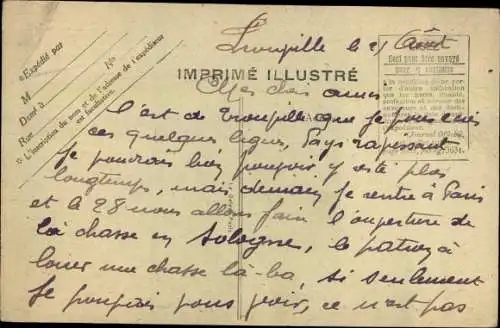 Trouville le 21 Août
*Expédié par
M
Nº
Dant à
Rue
* L'inscription du nom et de l'adresse de l'expéditeur
est facultative.
IMPRIMÉ ILLUSTRÉ
Ceci peut être envoyé
Mes chers amis
C'est de Trouville que je vous écris
ces quelques lignes, Pays
je pourrais bien pouvoir y être plus
longtemps, mais demain je rentre à Paris
et le 28 nous allons faire l'ouverture de
la chasse en Sologne, le patron à
louer une chasse là-ba, si seulement
je pouvais vous voir, ce n'est pas